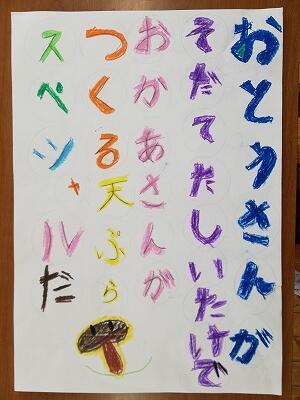 おとうさんが
そだてたしいたけで
おかあさんが
つくる天ぷら
スペシャルだ